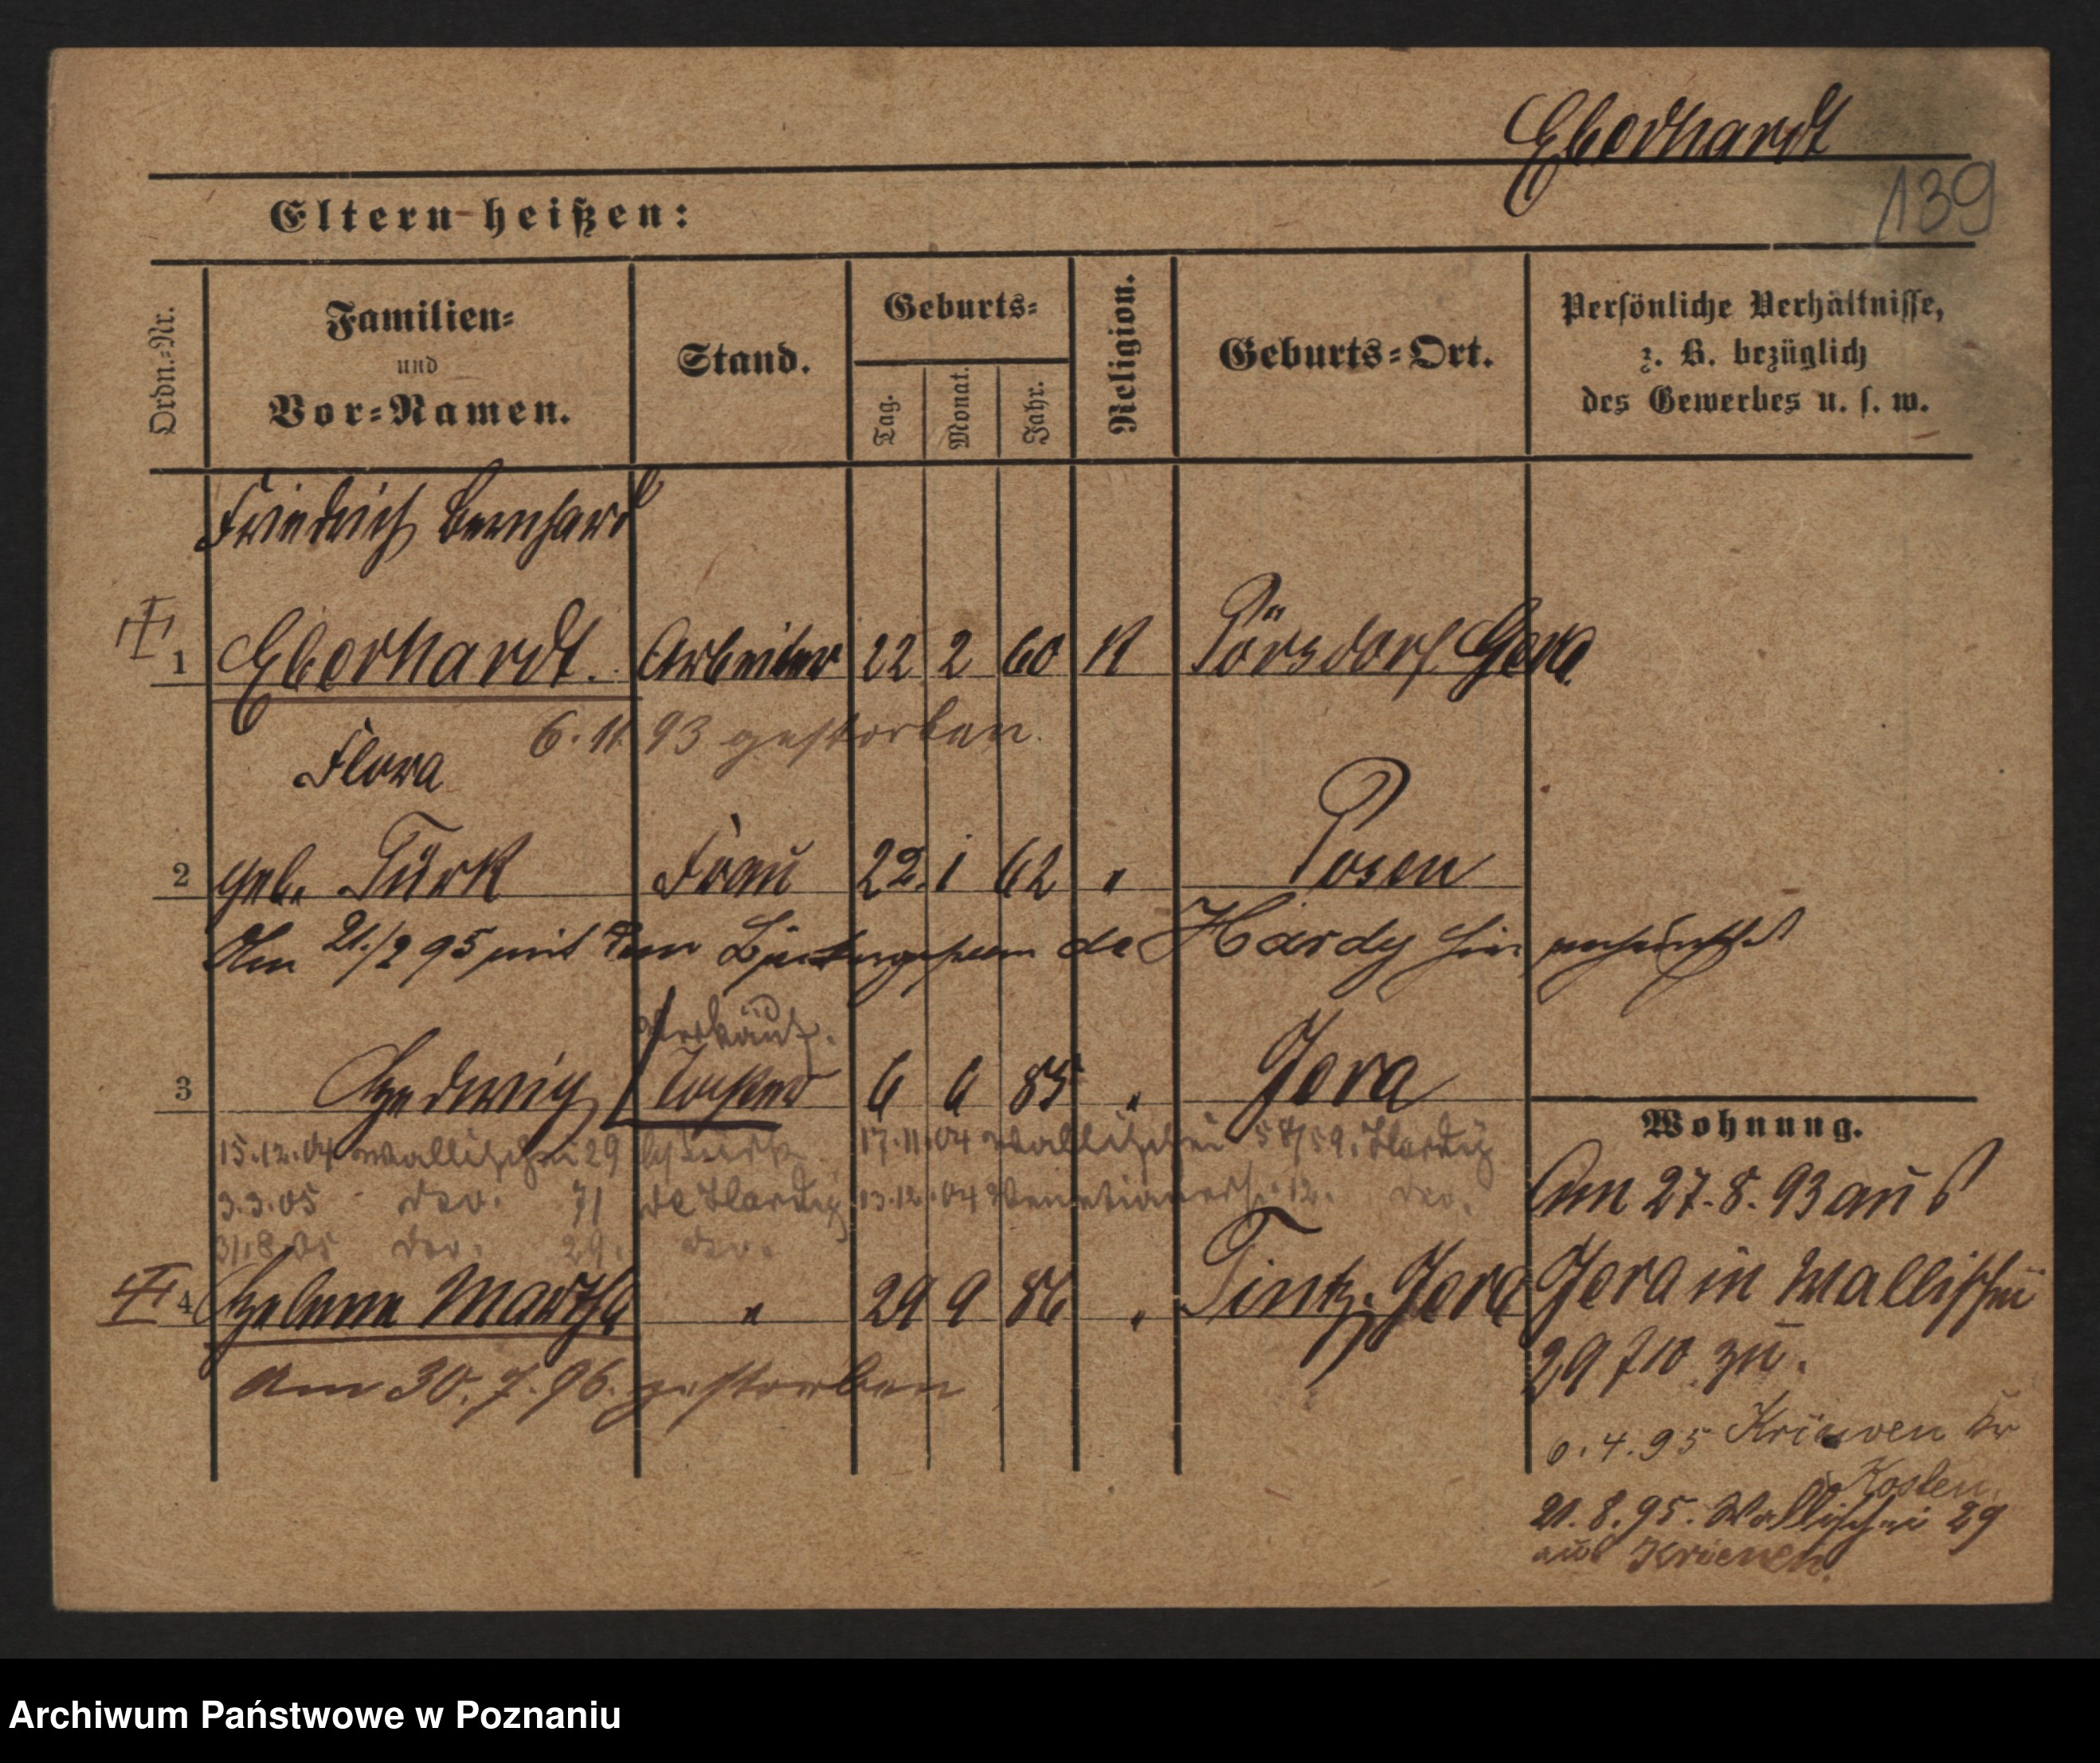 Eberhardt
139
Eltern heißen:
Ordn.-Nr.
Familien-
und
Vor-Namen.
Stand.
Geburts-
Tag.
Monat.
Jahr.
Religion.
Geburts-Ort.
Persönliche Verhältnisse,
z. B. bezüglich
des Gewerbes u. s. w.
Friedrich Bernhard
1 Eberhardt. Arbeiter 22 2 60 K Pörsdorf Gera
6. 11. 93 gestorben.
Flora
2 geb. Türk Frau 22. 1 62 " Posen
Am 21./2 95 mit dem de Hardy hier
Verkäuf.
3 Hedwig Tochter 6 6 85 " Gera
15.12.04 Wallischei 29 b/Türk 17.11.04 Wallischei 58/59. Hardy
3.3.05 do. 71 de Hardy 13.12.04 Venetianerst. 12. do.
31.8.05 do. 29. do.
4 Helene Martha " 29 9 86 " Tintz. Gera
Am 30. 7. 96. gestorben
Wohnung.
Am 27. 8. 93 aus
Gera in Wallischei
29 zu.
6. 4. 95 Kriewen Kr
Kosten.
21. 8. 95. Wallischei 29
aus Kriewen.
Archiwum Państwowe w Poznaniu